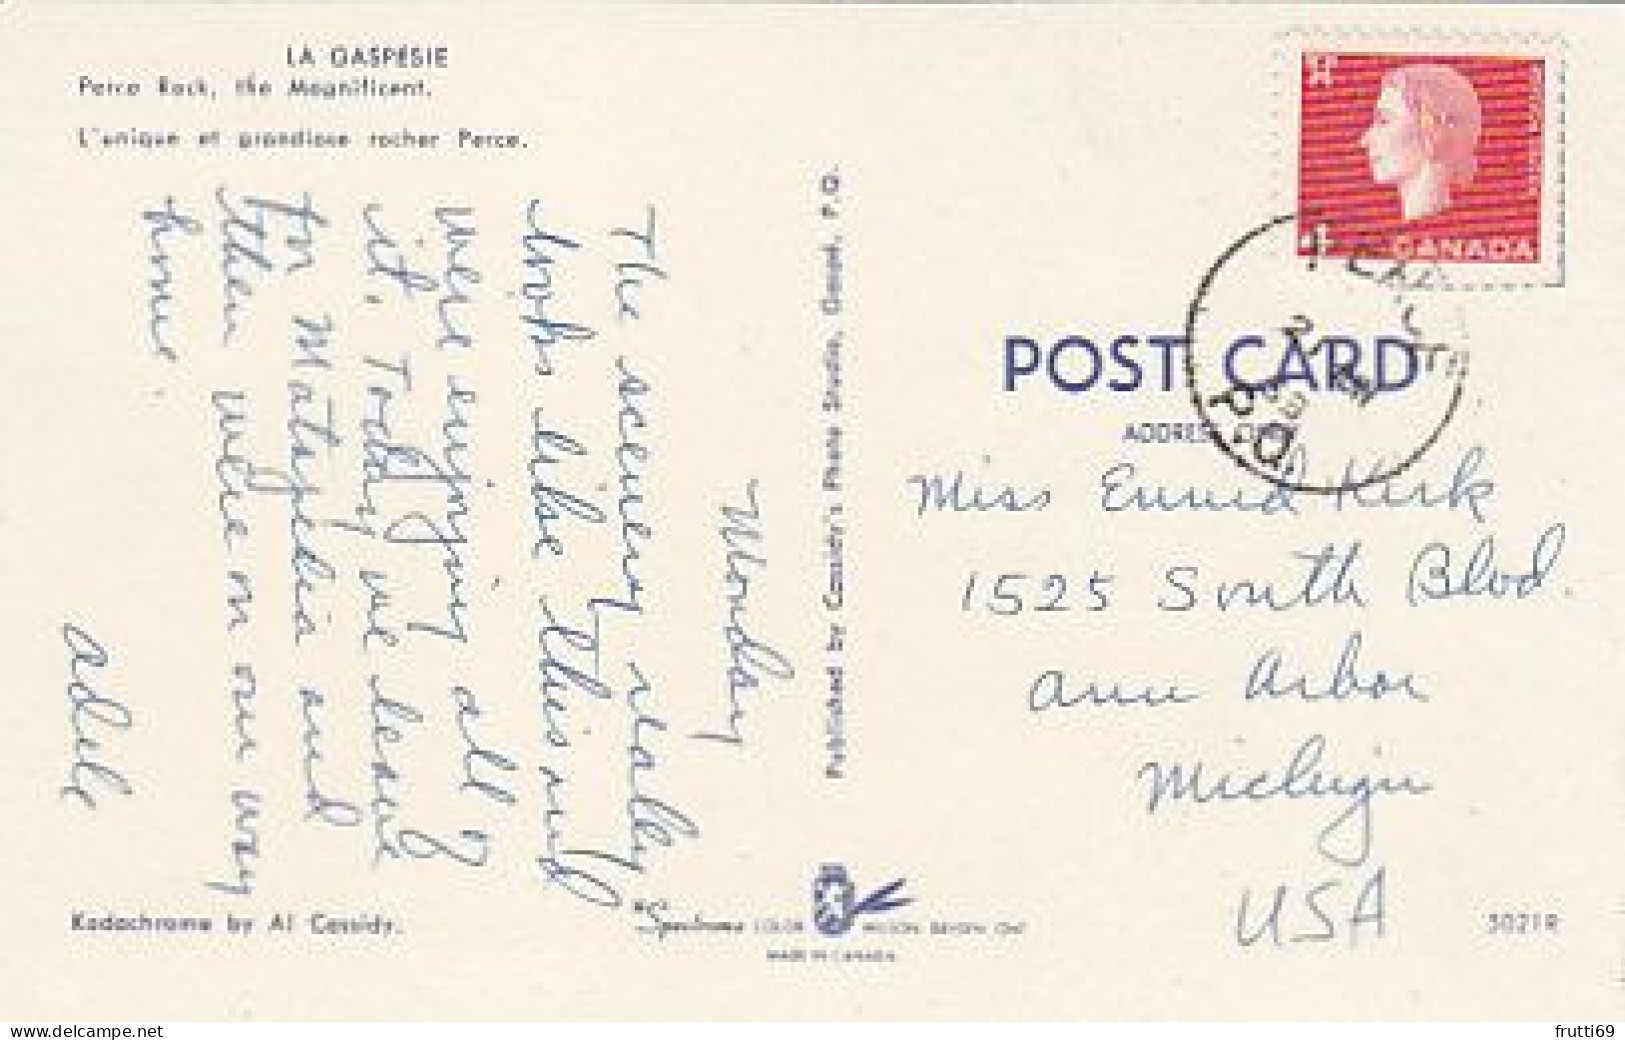 LA GASPÉSIE
Perce Rock, the Magnificent.
L'unique et grandiose rocher Perce.
Monday
The scenery really
looks like this and
were enjoying all of
it. Today we leave
for Matapedia and
then were on our way
home.
Adele
Kodachrome by Al Cassidy.
Published by Cassidy's Photo Studio, Gaspé, P.Q.
Spectrome COLOR WILSON, DRYDEN, ONT
MADE IN CANADA
4 CANADA
P.Q.
POST CARD
ADDRESS
Miss Ennid Kirk
1525 South Blvd.
Ann Arbor
Michigan
USA
5021R
frutti69